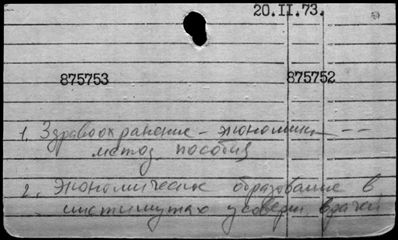 20.II.73.
875753 875752
1. Здравоохранение – экономика – –
метод. пособия
2. Экономическое образование в
институтах усоверш. врачей